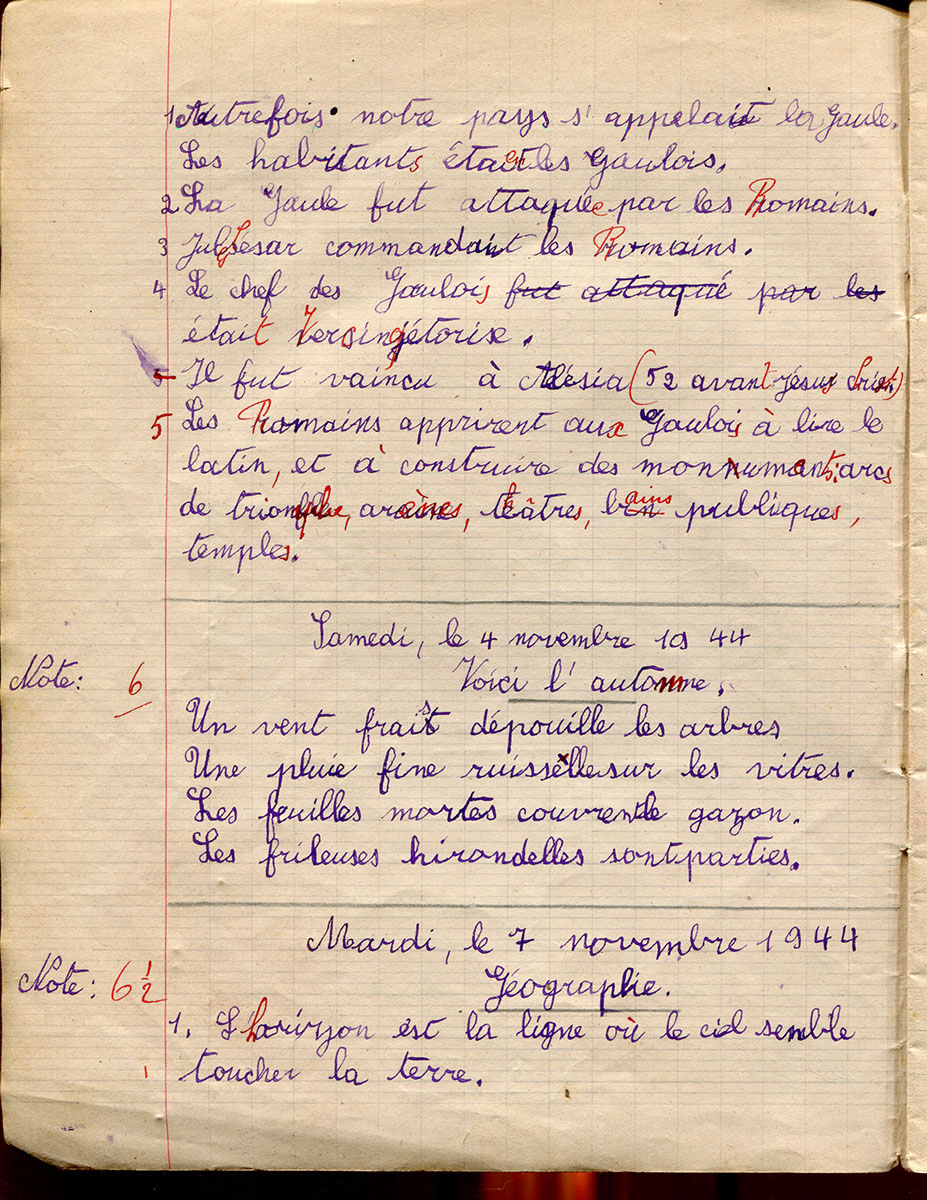 1 Autrefois notre pays s'appelait la Gaule.
Les habitants étaient les Gaulois.
2 La Gaule fut attaquée par les Romains.
3 Jules César commandait les Romains.
4 Le chef des Gaulois fut attaqué par les
était Vercingétorixe.
5 Il fut vaincu à Alésia (52 avant Jésus Christ)
5 Les Romains apprirent aux Gaulois à lire le
latin, et à construire des monuments: arcs
de triomphe, arènes, théâtres, bains publiques,
temples.
Samedi, le 4 novembre 1944
Note: 6
Voici l'automne.
Un vent frais dépouille les arbres
Une pluie fine ruisselle sur les vitres.
Les feuilles mortes couvrent le gazon.
Les frileuses hirondelles sont parties.
Mardi, le 7 novembre 1944
Note: 6 1/2
Géographie.
1. L'horizon est la ligne où le ciel semble
toucher la terre.